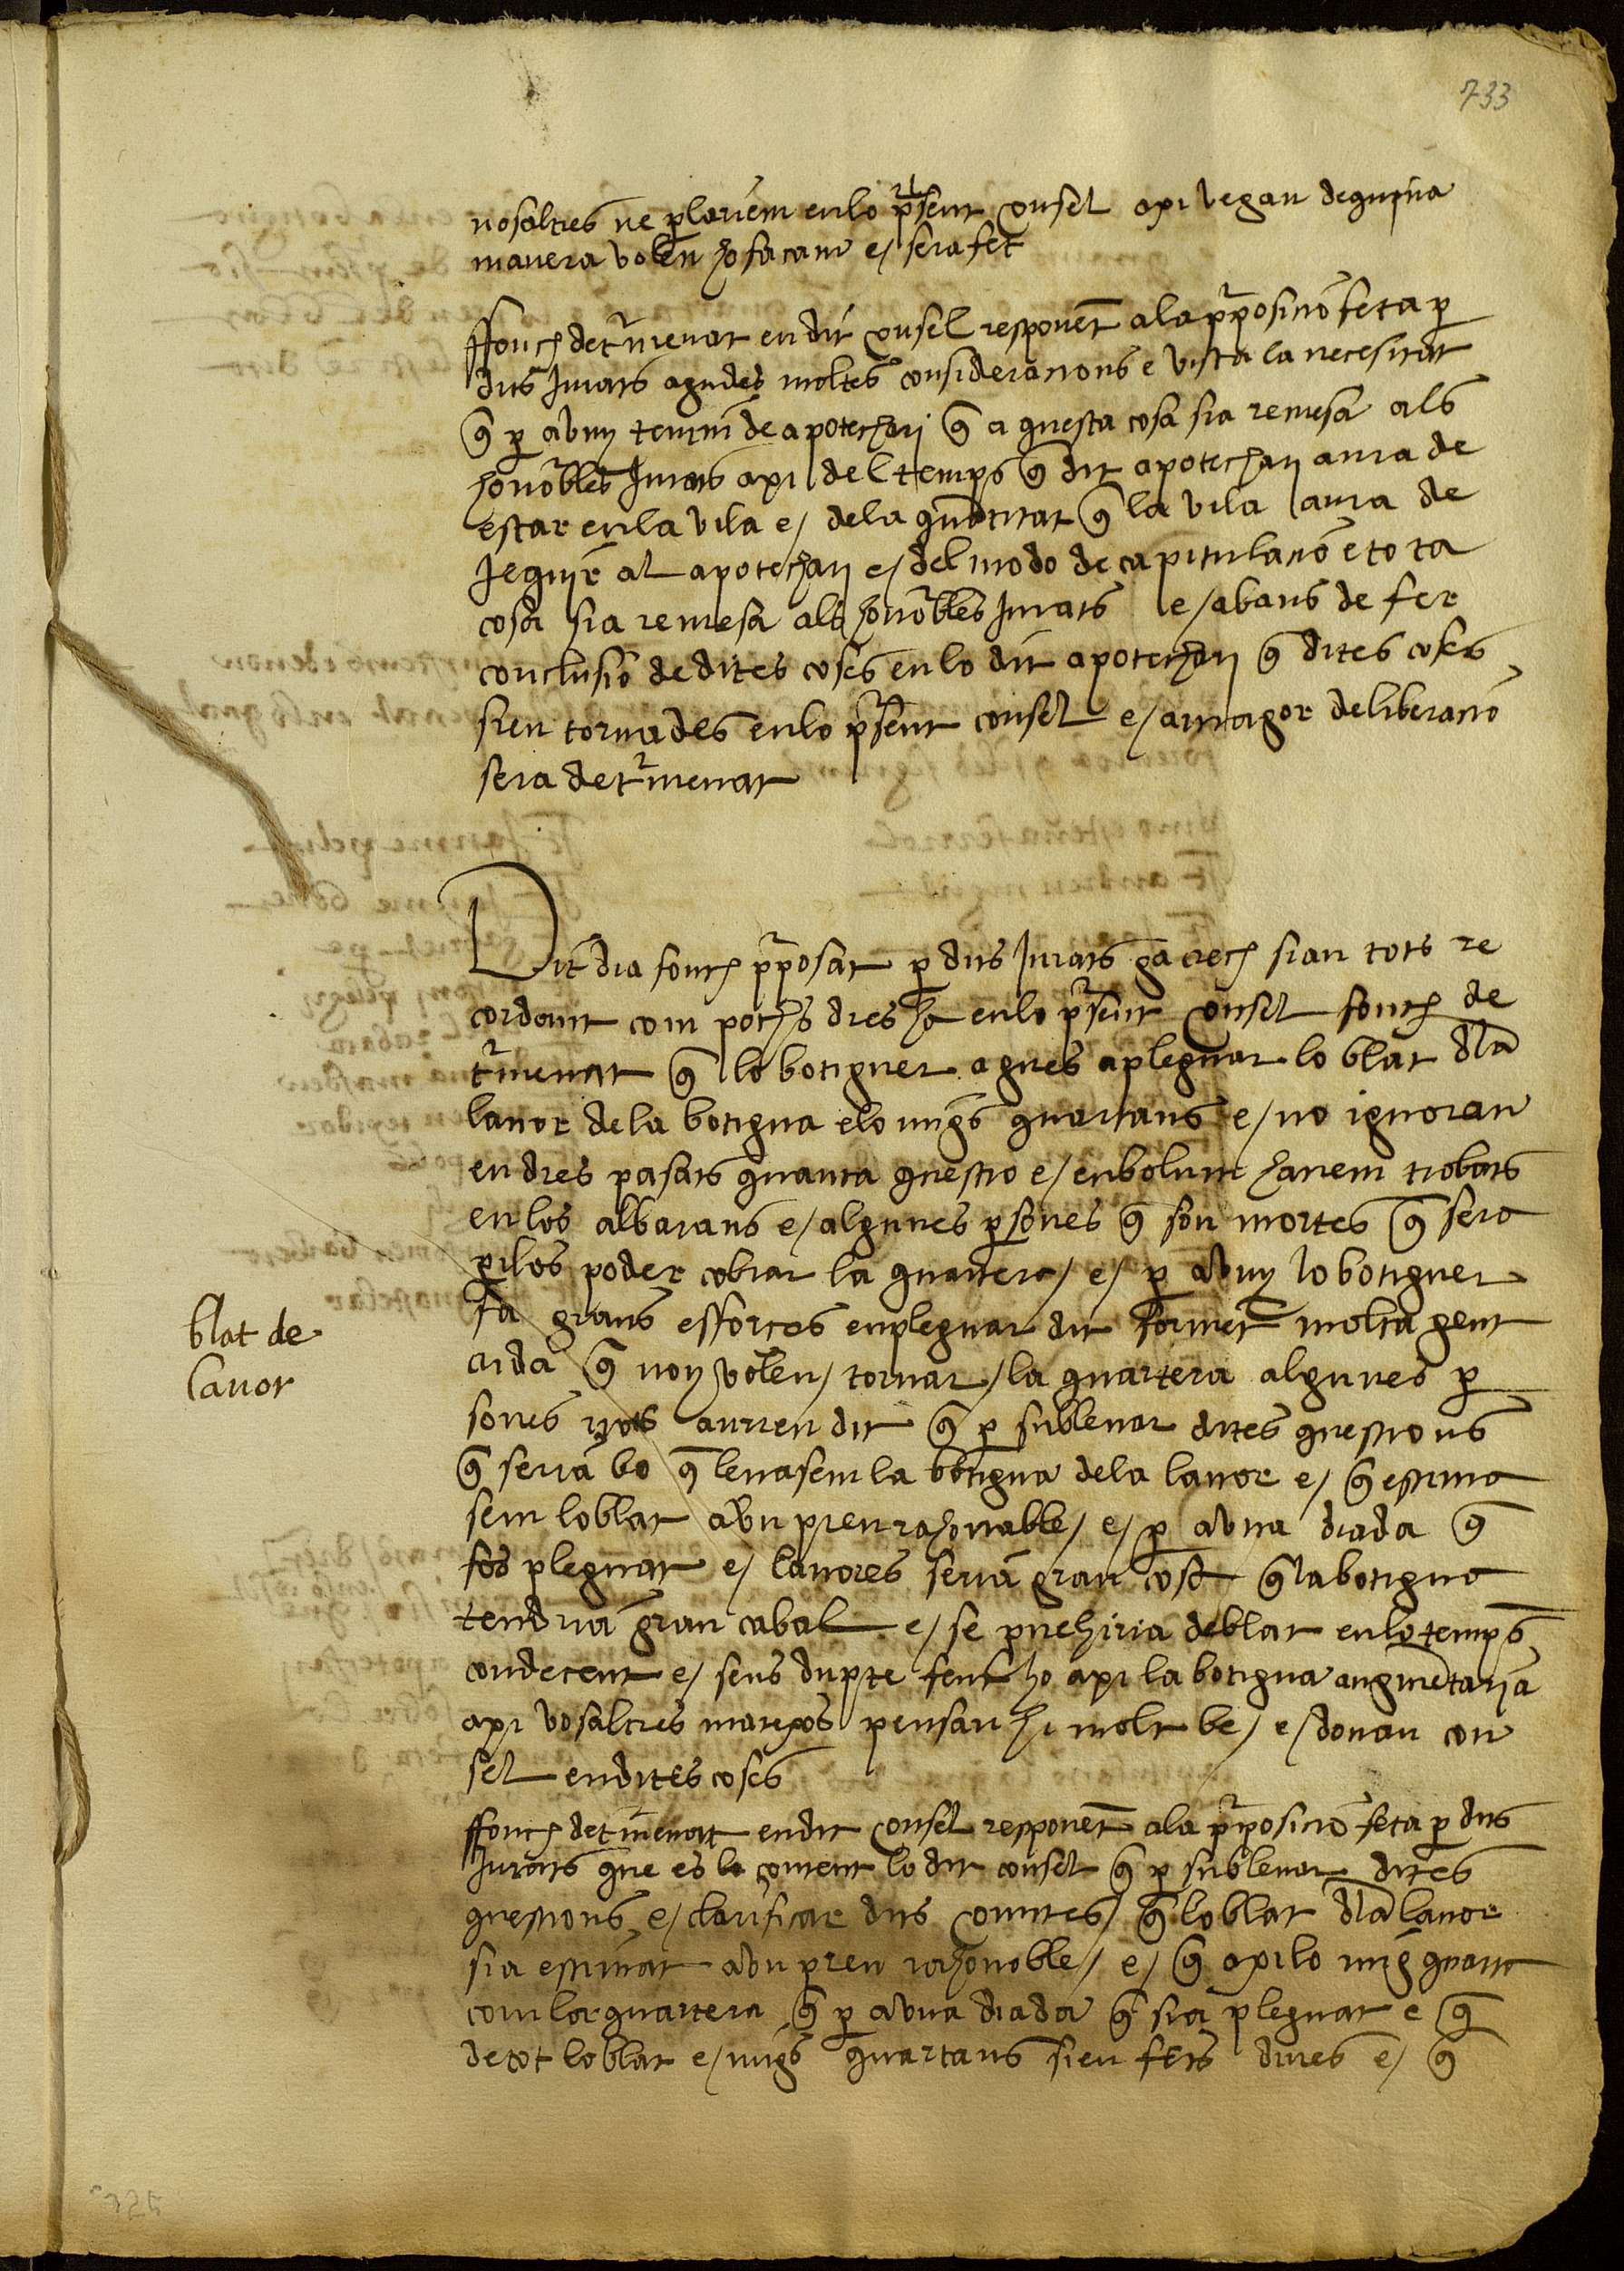 733
nosaltres ne parlariem en lo present consel axi vegan de quina
manera volen ho façam e/ sera fet
ffonch determenat en dit consel responent a la proposicio feta per
dits Jurats agudes moltes consideracions e vista la necesitat
que per avuy tenim de apotechari que aquesta cosa sia remesa als
honorables Jurats axi del temps que dit apotechari aura de
estar en la vila e/ de la quantitat que la vila aura de
seguir al apotechari e/ del modo de capitulacio e tota
cosa sia remesa als honorables Jurats e/ abans de fer
conclusio de dites coses en lo dit apotechari que dites coses
sien tornades en lo present consel e/ a magor deliberacio
sera determenat
Dit dia fonch proposat per dits Jurats ga crech sian tots re
cordant com pochs dies ha en lo present consel fonch de
termenat que lo botiguer agues a pleguar lo blat de la
lavor de la botigua e los migs quartans e/ no ignoran
en dies pasats quanta questio e/ enbolum havem trobats
en los albarans e/ algunes persones que son mortes que sera
perilos poder cobrar la quartera/ e/ per avuy lo botiguer
fa grans esforços en pleguar dit forment molta gent
crida que noy volen/ tornar/ la quartera algunes per
sones nos aurien dit que per sublevar dites questions
que seria bo que levasem la botigua de la lavor e/ que estima
sem lo blat a un preu rahonable/ e/ per a una diada que
fos pleguat e/ lavores seria gran cost que la botigua
tendria gran cabal e/ se provehiria de blat en lo temps
condecent e/ sens dupte fent ho axi la botigua augmentaria
axi vosaltres matexos pensan hi molt be/ e/ donan con
sel en dites coses
ffonch determenat en dit consel responent a la proposicio feta per dits
Jurats que es content lo dit consel que per sublevar dites
questions e/ clarificar dits comtes/ que lo blat de la lavor
sia estimat a un preu rahonoble/ e/ que axi lo mig quarta
com la quartera que per a una diada que sia pleguat e que
de tot lo blat e/ migs quartans sien fets dines e/ que
blat de
lavor